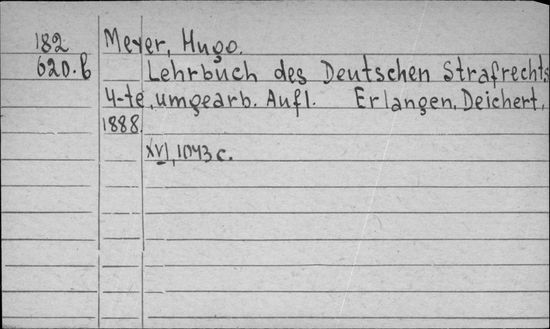 182 Meyer, Hugo.
620.b Lehrbuch des Deutschen Strafrechts
4-te, umgearb. Aufl. Erlangen, Deichert,
1888.
XVI, 1043 c.